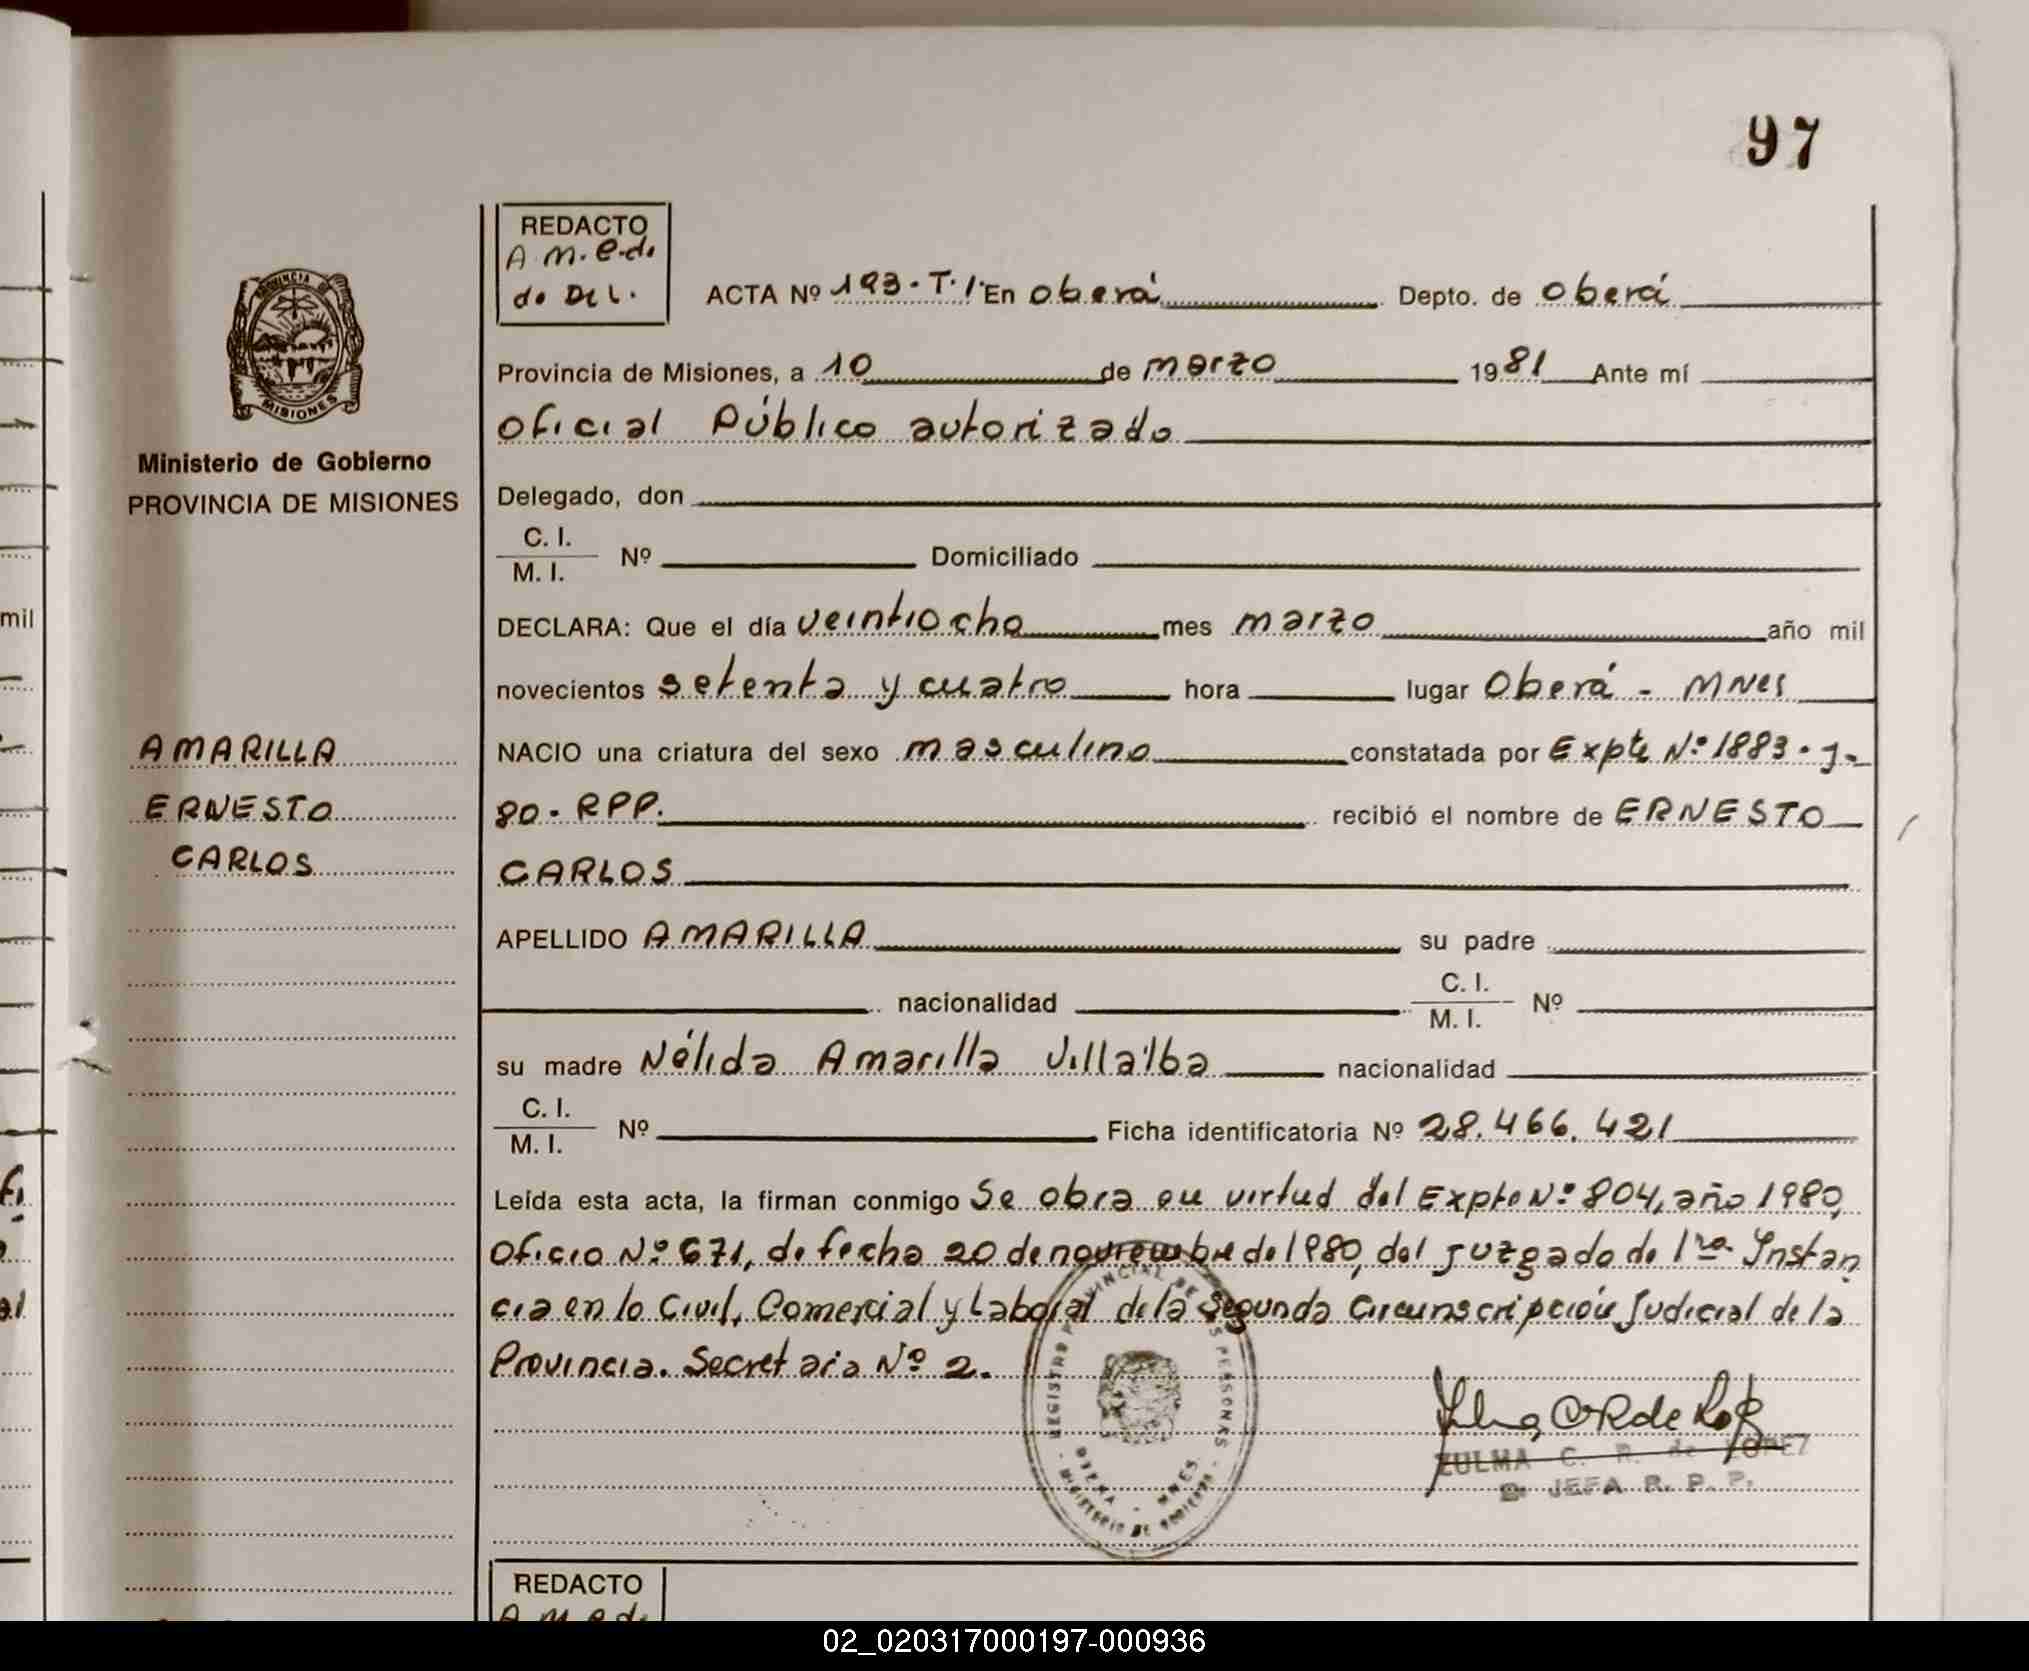 97
REDACTO
A. M. e. d.
de Del.
ACTA Nº 193. T. I. En Oberá Depto. de Oberá
Provincia de Misiones, a 10 de marzo 1981 Ante mí
Oficial Público autorizado
Delegado, don
C. I.
M. I. Nº Domiciliado
DECLARA: Que el día veintiocho mes marzo año mil
novecientos setenta y cuatro hora lugar Oberá - MNes
NACIO una criatura del sexo masculino constatada por Expte Nº 1883 - J-
80 - RPP. recibió el nombre de ERNESTO
CARLOS
APELLIDO AMARILLA su padre
nacionalidad C. I.
M. I. Nº
su madre Nélida Amarilla Villalba nacionalidad
C. I.
M. I. Nº Ficha identificatoria Nº 28.466.421
Leída esta acta, la firman conmigo Se obra en virtud del Expte Nº 804, año 1980,
Oficio Nº 671, de fecha 20 de noviembre de 1980, del Juzgado de 1ra. Instan
cia en lo Civil, Comercial y Laboral de la Segunda Circunscripción Judicial de la
Provincia. Secretaria Nº 2.
REGISTRO PROVINCIAL DE LAS PERSONAS
OBERA - MNES.
MINISTERIO DE GOBIERNO
ZULMA C. R. de LOPEZ
JEFA R. P. P.
PROVINCIA DE
MISIONES
Ministerio de Gobierno
PROVINCIA DE MISIONES
AMARILLA
ERNESTO
CARLOS
mil
REDACTO
A. M. e. d.
02_020317000197-000936